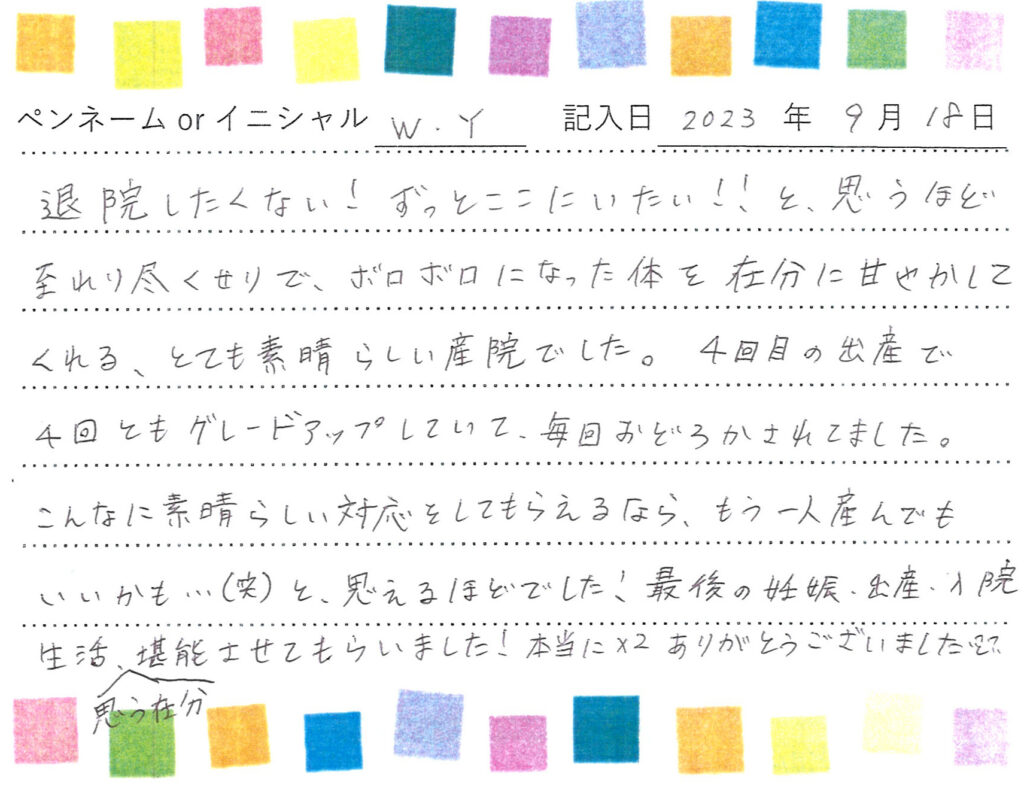 ペンネーム or イニシャル W.Y 記入日 2023 年 9 月 18 日
退院したくない! ずっとここにいたい!! と、思うほど
至れり尽くせりで、ボロボロになった体を在分に甘やかして
くれる、とても素晴らしい産院でした。 4回目の出産で
4回ともグレードアップしていて、毎回おどろかされてました。
こんなに素晴らしい対応をしてもらえるなら、もう一人産んでも
いいかも…(笑)と、思えるほどでした! 最後の妊娠・出産・入院
生活、堪能させてもらいました! 本当に×2 ありがとうございました
思う在分